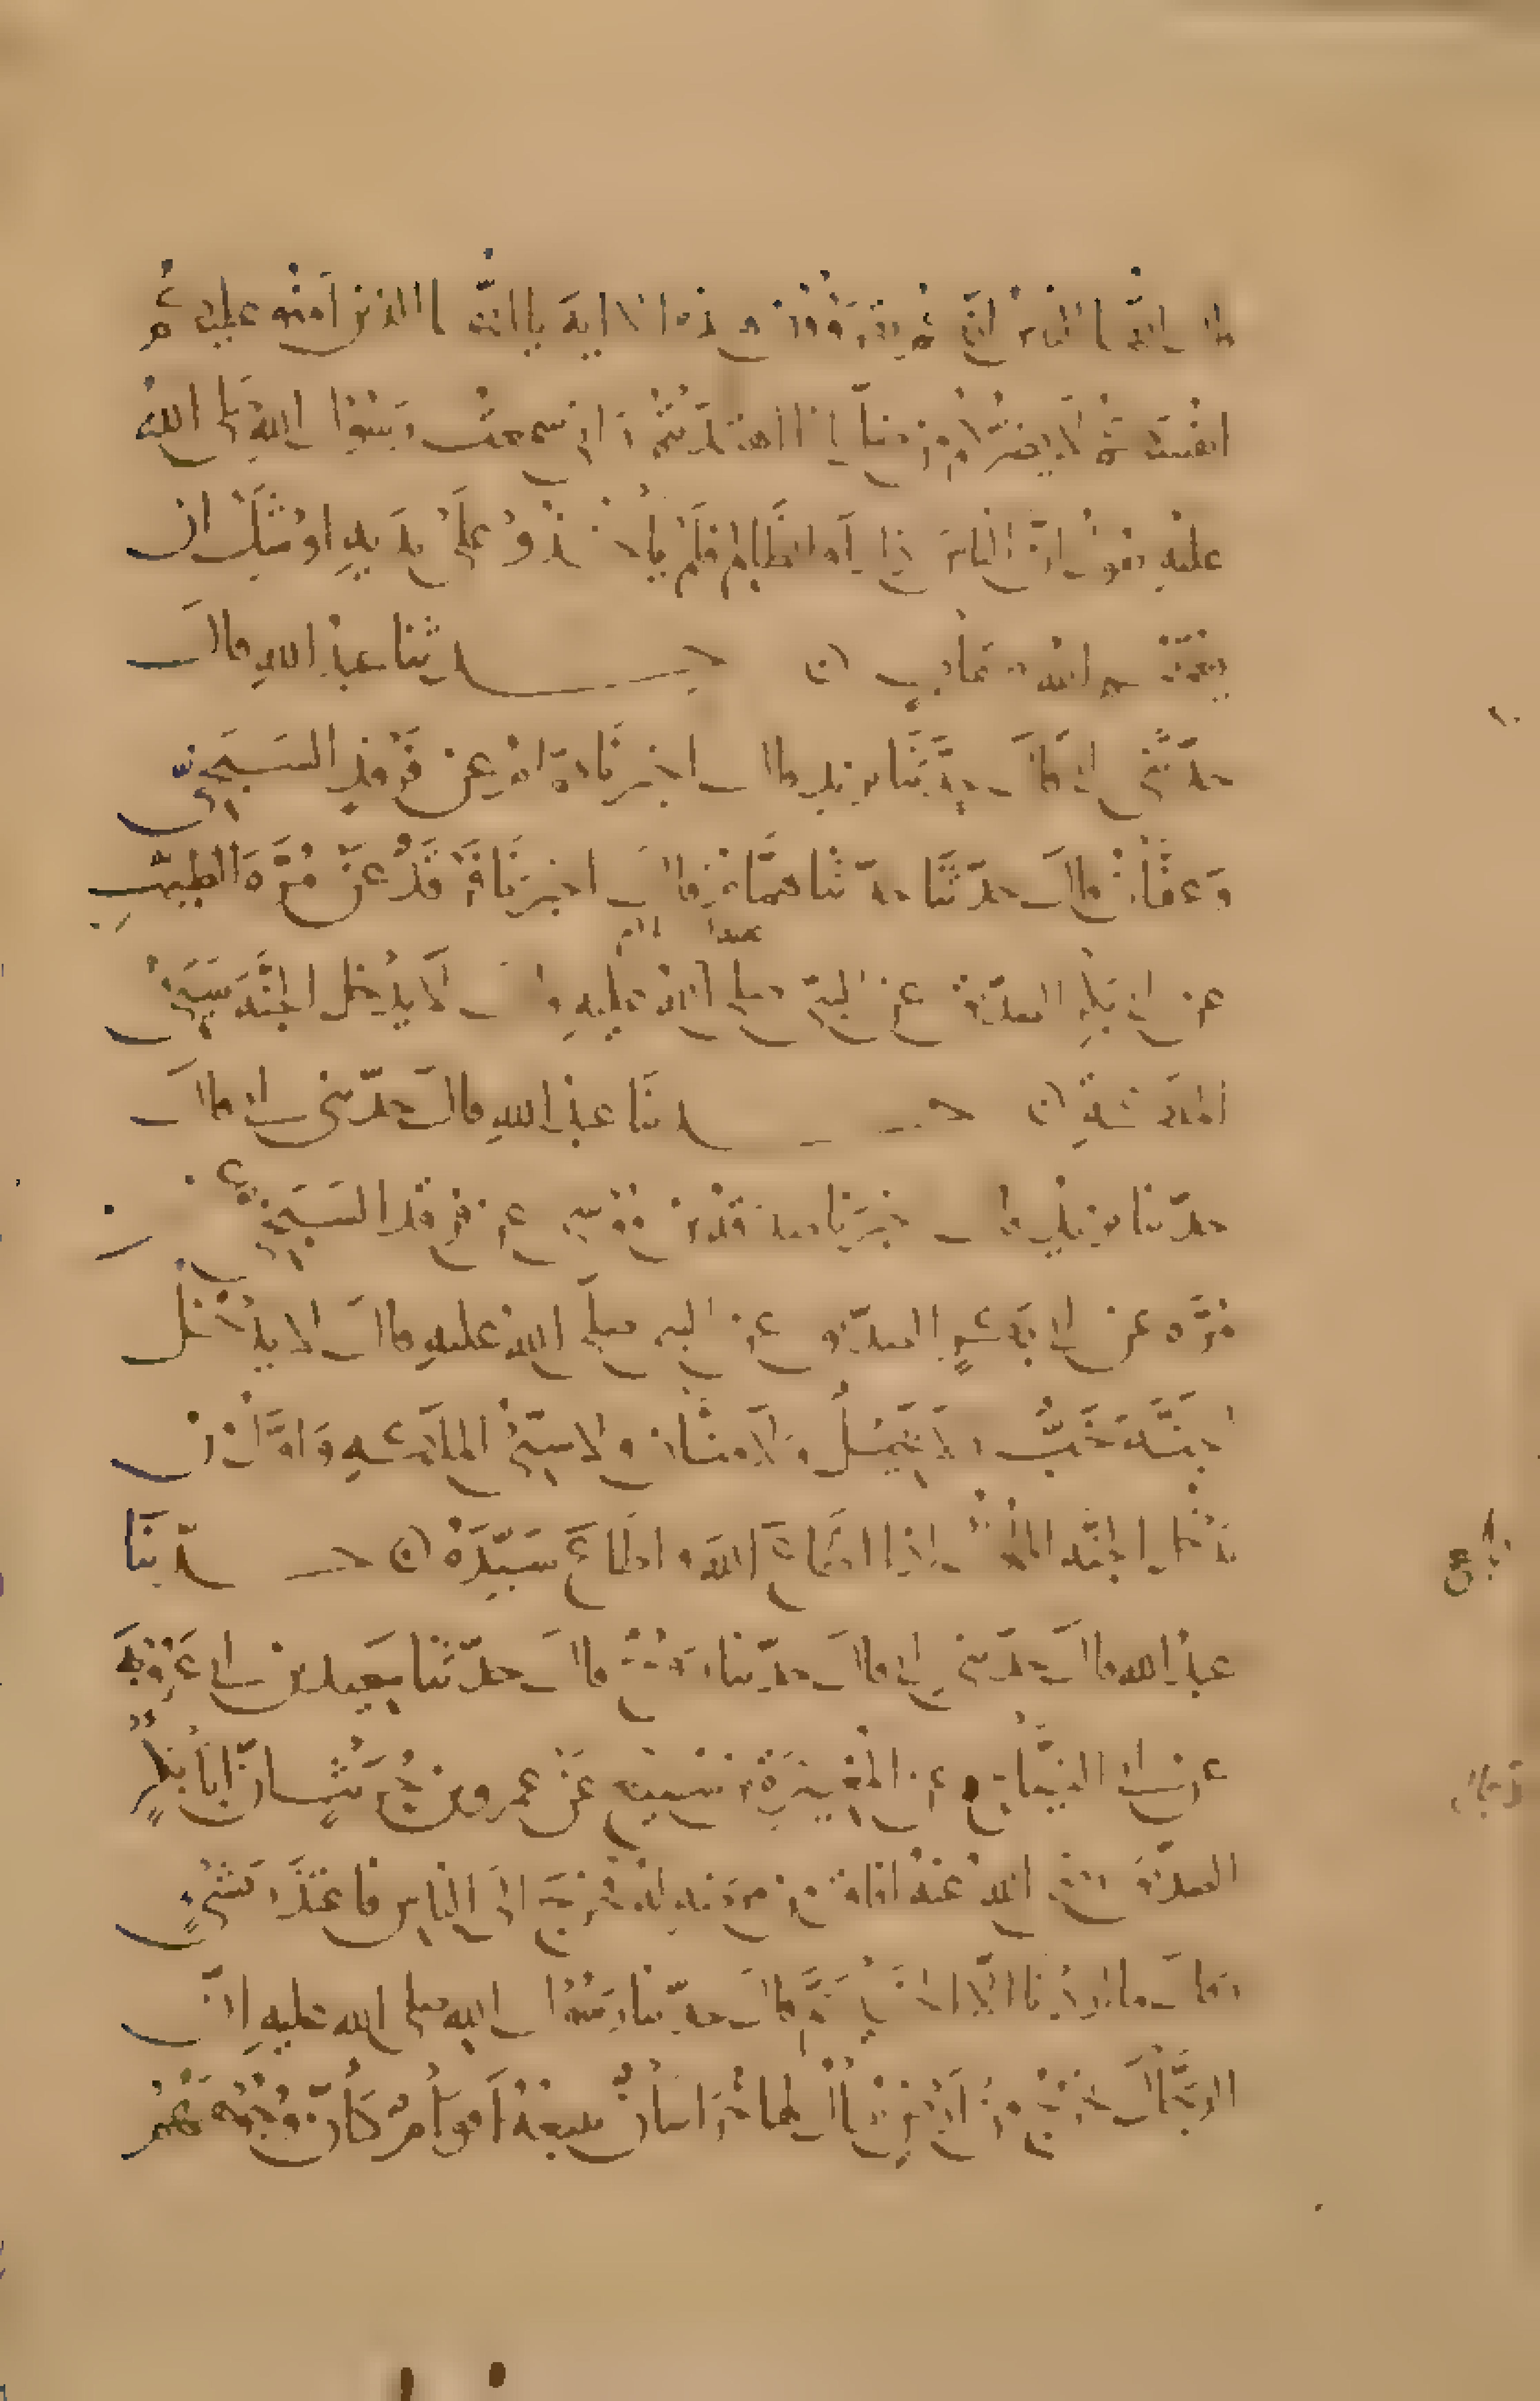 قال يا ايها الناس انكم تقرؤون هذه الاية يا ايها الذين امنوا عليكم
انفسكم لا يضركم من ضل اذا اهتديتم واني سمعت رسول الله صلى الله
عليه يقول ان الناس اذا راوا الظالم فلم ياخذوا على يديه اوشك ان
يعمهم الله بعقابه حدثنا عبد الله قال
حدثني ابي قال حدثنا يزيد قال اخبرنا همام عن فرقد السبخي
وعفان قال حدثنا همام قال اخبرنا فرقد عن مرة الطيب
عن ابي بكر الصديق عن النبي صلى الله عليه قال لا يدخل الجنة سيئ
الملكة حدثنا عبد الله قال حدثني ابي قال
حدثنا يزيد قال اخبرنا صدقة بن موسى عن فرقد السبخي عن
مرة عن ابي بكر الصديق عن النبي صلى الله عليه قال لا يدخل
الجنة خب ولا بخيل ولا منان ولا سيئ الملكة واول من
يدخل الجنة المملوك اذا اطاع الله واطاع سيده حدثنا
عبد الله قال حدثني ابي قال حدثنا روح قال حدثنا سعيد بن ابي عروبة
عن ابي التياح عن المغيرة بن سبيع عن عمرو بن حريث ان ابا بكر
الصديق رضي الله عنه افاق من مرضه له فخرج الى الناس فاعتذر بشي
وقال ما اردنا الا الخير ثم قال حدثنا رسول الله صلى الله عليه ان
الدجال يخرج من ارض يقال لها خراسان يتبعه اقوام كان وجوههم